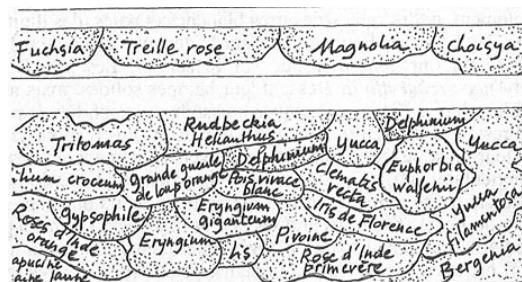 Fuchsia
Treille rose
Magnolia
choisya
Tritomas
Rudbeckia
Helianthus
Delphinium
Yucca
Delphinium
Yucca
lium croceum
grande gueule
de loup orange
Pois vivace
blanc
clematis
recta
Euphorbia
wulfenii
gypsophile
Eryngium
giganteum
Iris de Florence
Yucca
filamentosa
Roses d'Inde
orange
Eryngium
lis
Pivoine
Rose d'Inde
primevère
Bergenia
apucine
aine jaune